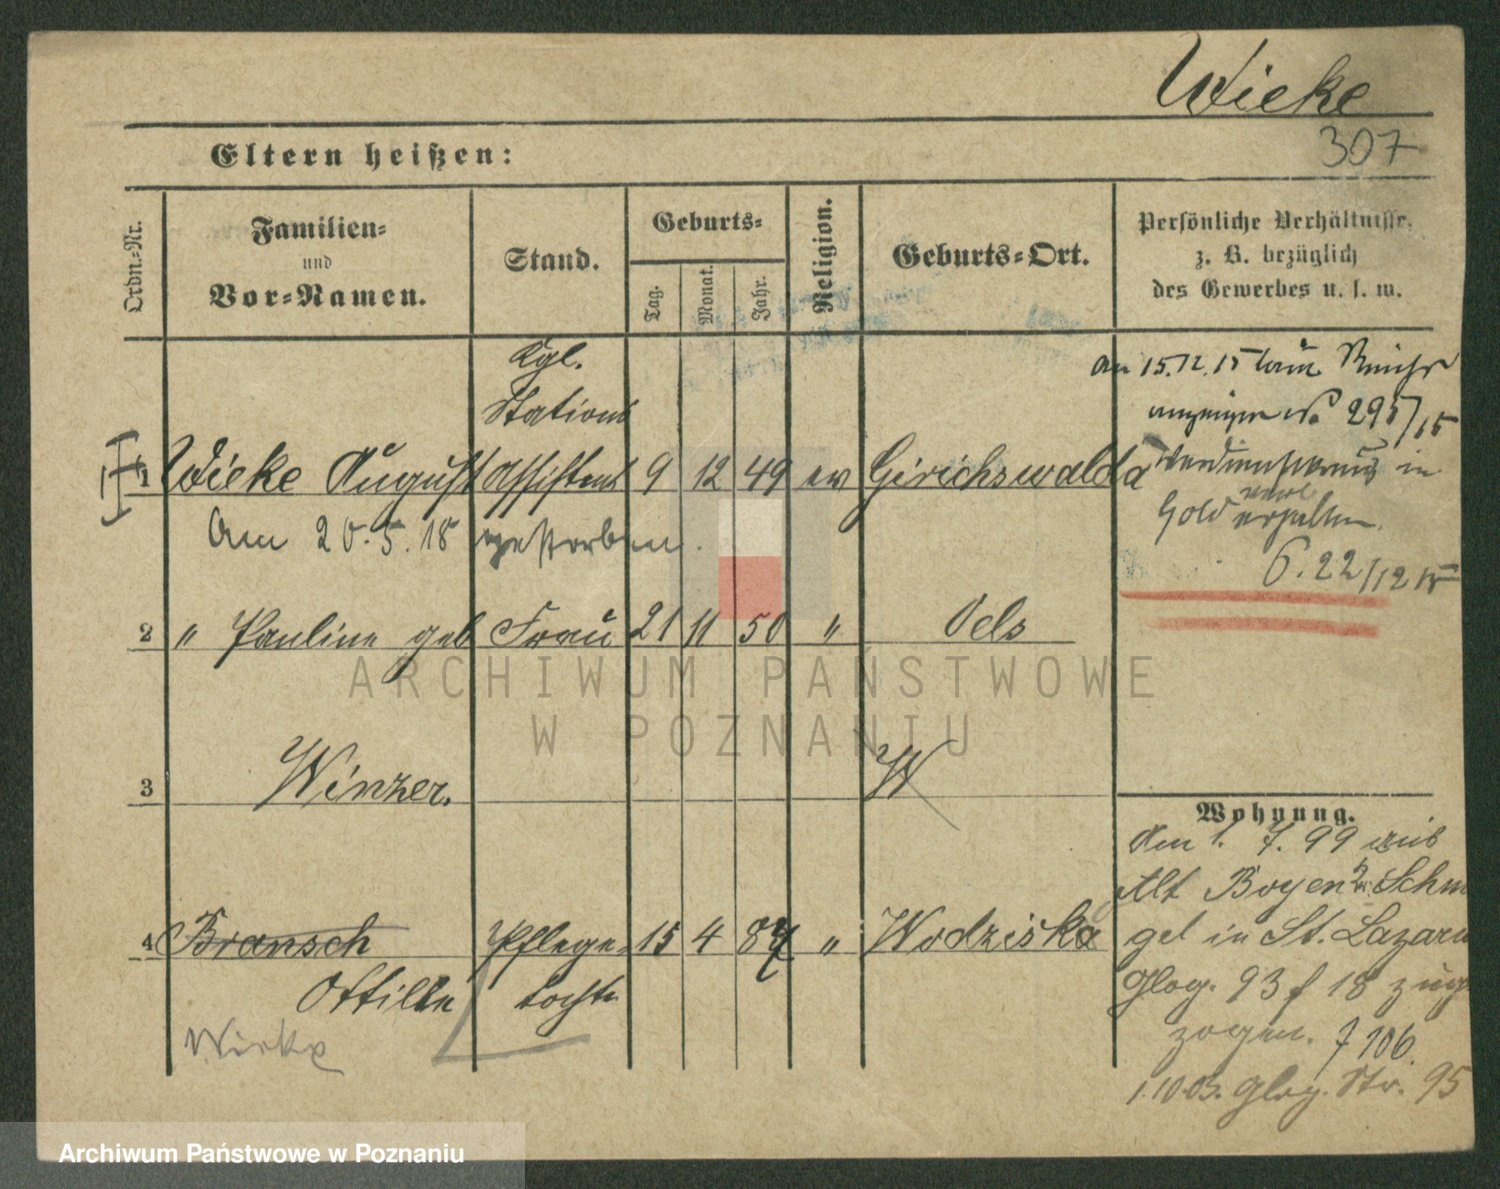 Wieke
307
Eltern heißen:
Ordn.-Nr.
Familien-
und
Vor-Namen.
Stand.
Geburts-
Tag.
Monat.
Jahr.
Religion.
Geburts-Ort.
Persönliche Verhältnisse,
z. B. bezüglich
des Gewerbes u. s. w.
1 Wieke August Kgl. Stations Assistent 9 12 49 ev Girichswalda
Am 20.5.18 gestorben.
2 " Pauline geb Frau 21 11 50 " Oels
3 Winzer. W
4 Bransch Pflege- 15 4 87 " Wodziska
Ottilie tochter
Wieke
Am 15.12.15 laut Reichs
anzeiger No 295/15
Verdienstkreuz in
Gold erhalten.
6.22/12 15
Wohnung.
Am 1. 7. 99 aus
Alt Boyen Schmie
gel in St. Lazarus
Glog. 93 f 18 zuge
zogen. f 106.
1.10.03. Glog. Str. 95
ARCHIWUM PAŃSTWOWE
W POZNANIU
Archiwum Państwowe w Poznaniu